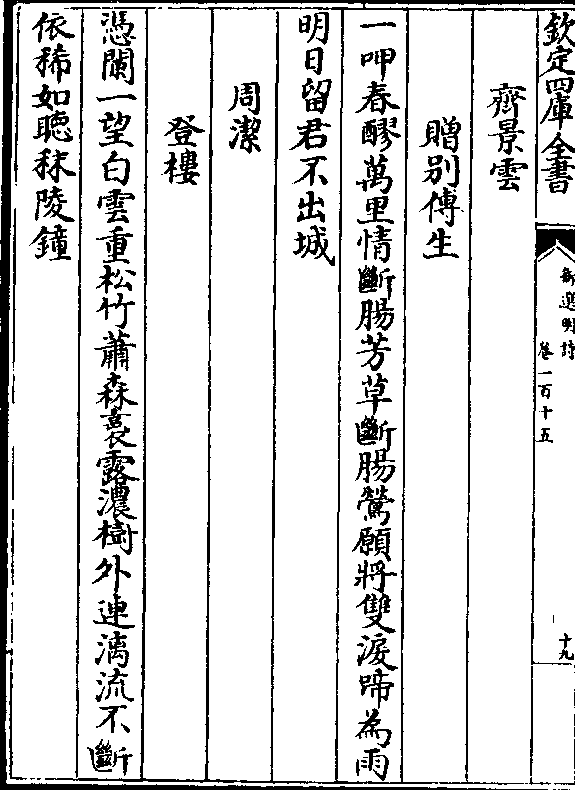 欽定四庫全書
御選明詩
卷一百十五
十九
齊景雲
贈別傅生
一呷春醪萬里情斷腸芳草斷腸鶯願將雙淚蹄為雨
明日留君不出城
周潔
登樓
憑闌一望白雲重松竹蕭森裛露濃樹外連漓流不斷
依稀如聽秣陵鐘